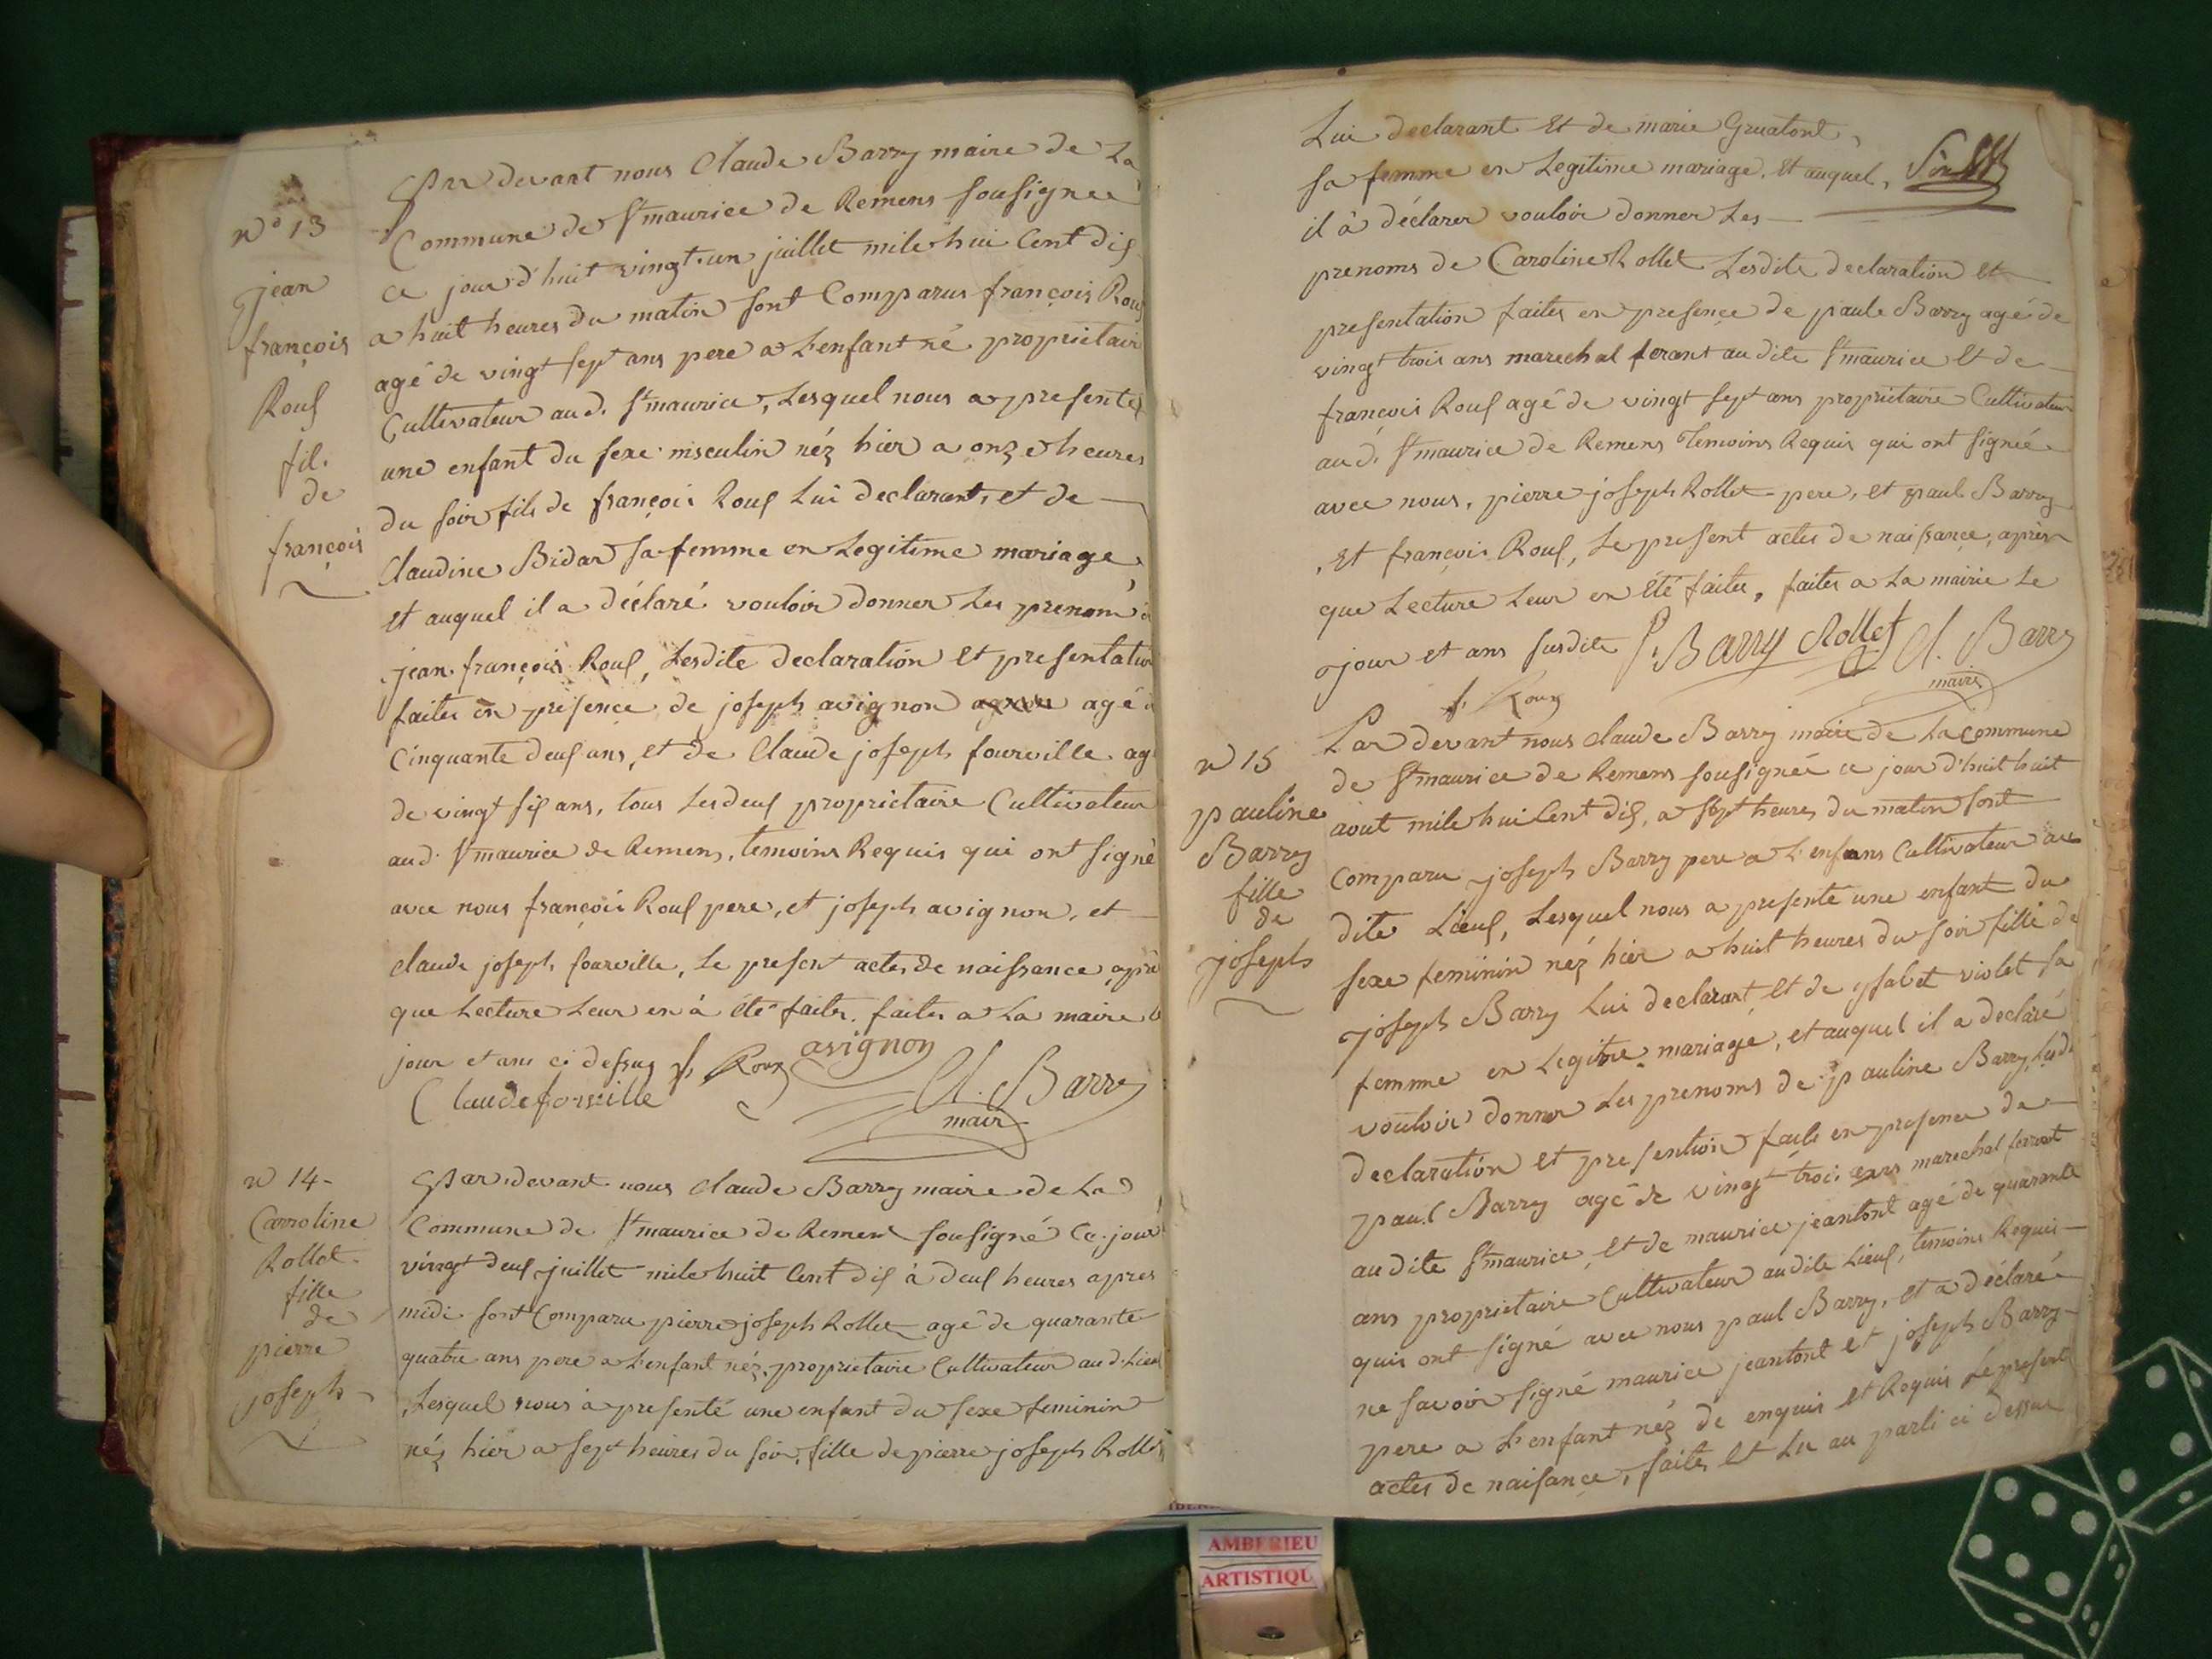 n° 13
jean
françois
Rouf
fil.
de
françois
Par devant nous Claude Barry maire de La
Commune de St maurice de Remens sousignee
ce jour d'huit vingt un juillet mile hui Cent dix
a huit heures du matin sont Comparus françois Roux
agé de vingt sept ans pere a L'enfant né proprietair
Cultivateur au d. St maurice, Lesquel nous a presentez
une enfant du sexe misculin néz hier a onze heures
du soir fils de françois Roux Lui declarant, et de
Claudine Bidar sa femme en Legitime mariage,
et auquel il a déclaré vouloir donner Les prenom
jean françois Roux, Lesdite declaration et presentation
faites en presence de joseph avignon agé
Cinquante deux ans, et de Claude joseph fourville ag
de vingt six ans, tous Les deux proprietaire Cultivateur
au d. St maurice de Remens, temoins Requis qui ont signé
avec nous françois Roux pere, et joseph avignon, et
claude joseph fourville, Le present actes de naissance apré
que Lecture Leur en à été faites. faites a La maire
jour et ans ci dessus f. Roux avignon
Claude forville Cl. Barry
mair
n 14
Carroline
Rollet
fille
de
pierre
joseph
Par devant nous Claude Barry maire de La
Commune de St maurice de Remens sousigné Ce jour
vingt deux juillet mile huit Cent dix à deux heures apres
midi sont Comparu pierre joseph Rollet agé de quarante
quatre ans pere a L'enfant néz. proprietaire Cultivateur au d. Lieu
Lesquel nous a presenté une enfant du sexe feminin
néz hier a sept heures du soir, fille de pierre joseph Rollet
Lui declarant et de marie Gruatont,
sa femme en Legitime mariage. et auquel,
il à déclarer vouloir donner Les
prenoms de Caroline Rollet Lesdite declaration et
presentation faites en presence de paule Barry agé de
vingt trois ans marechal ferant au dite St maurice et de
françois Roux agé de vingt sept ans proprietaire Cultivateur
au d. St maurice de Remens Temoins Requis qui ont signée
avec nous, pierre joseph Rollet pere, et paul Barry
et françois Roux, Le present actes de naissance, après
que Lecture Leur en été faites, faites a La mairie Le
jour et ans susdite P. Barry Rollet Cl. Barry
f. Roux maire
n 15
pauline
Barry
fille
de
joseph
Par devant nous claude Barry maire de La commune
de St maurice de Remens sousignée ce jour d'huit huit
aout mile hui Cent dix, a sept heures du matin sont
Comparu joseph Barry pere a L'enfans Cultivateur au
dite Lieux, Lesquel nous a presenté une enfant du
sexe feminin néz hier a huit heures du soir fille de
joseph Barry Lui declarant et de ysabet violet sa
femme en Legitime mariage, et auquel il a declaré
vouloir donner Les prenoms de pauline Barry, Lesd.
declaration et presention faite en presence de
paul Barry agé de vingt trois ans marechal ferrant
au dite St maurice, et de maurice jeantont agé de quarante
ans proprietaire Cultivateur au dite Lieux, temoins Requis
quis ont signé avec nous paul Barry, et a déclaré
ne savoir signé maurice jeantont et joseph Barry
pere a L'enfant néz de enquis et Requis Le present
actes de naisance, faites et Lu au parti ci dessus
AMBERIEU
ARTISTIQU